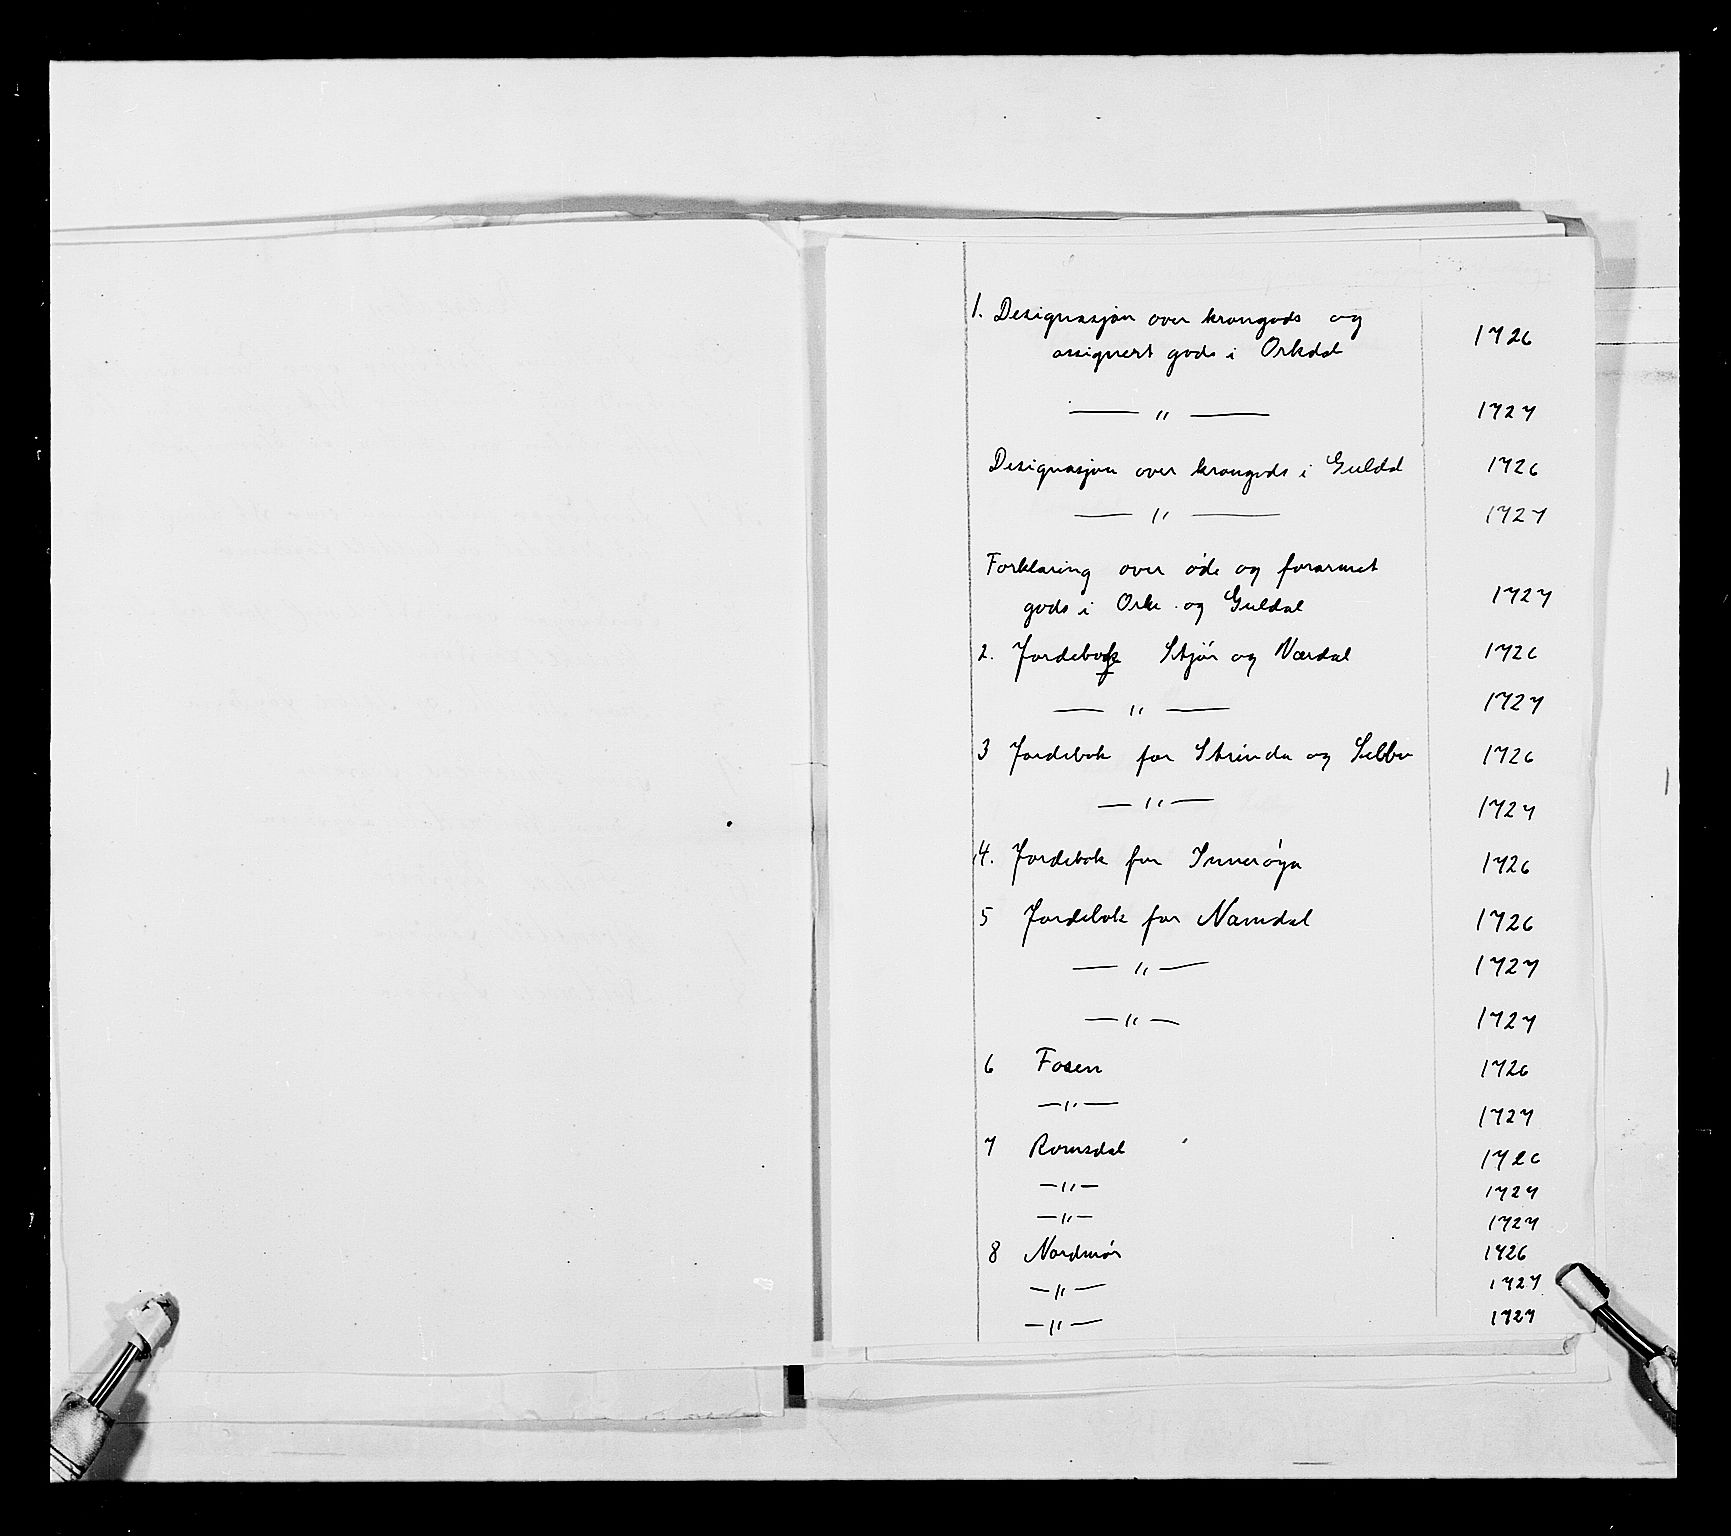 1. Designasjon over krongods og
assignert gods i Orkdal 1726
— " — 1727
Designasjon over krongods i Guldal 1726
— " — 1727
Forklaring over øde og forarmet
gods i Orke og Guldal 1727
2. Jordebok Stjør og Værdal 1726
— " — 1727
3 Jordebok for Strinda og Selbu 1726
— " — 1727
4. Jordebok for Innerøya 1726
5 Jordebok for Namdal 1726
— " — 1727
— " — 1727
6 Fosen 1726
— " — 1727
7 Romsdal 1726
— " — 1727
— " — 1727
8 Nordmør 1726
— " — 1727
— " — 1727